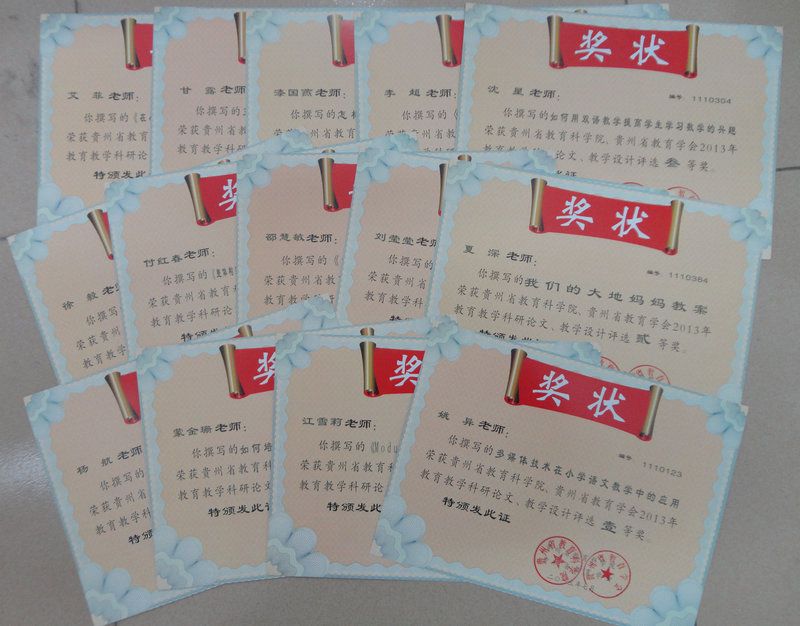 艾 菲老师：
你撰写的《在
荣获贵州省教育
教育教学科
特颁发此
甘 露老师：
你撰写的
荣获贵州省教
教育教学科
特颁发此
漆国燕老师：
你撰写的怎样
荣获贵州省教育
教育教学科
李 超老师：
你撰写的《
荣获贵州省教育
教育教学科
奖状
沈 星老师：
编号 1110304
你撰写的如何用双语教学提高学生学习数学的兴趣
荣获贵州省教育科学院、贵州省教育学会2013年
教育教学科研论文、教学设计评选 叁 等奖。
徐 毅老师
你撰写
荣获贵州
教育教学
特颁
奖
付红春老师：
你撰写的
荣获贵州省教育
教育教学科研
特颁发
邵慧敏老师：
你撰写的《
荣获贵州省教育
教育教学科研
刘莹莹老师
你撰写的
荣获贵州省
教育教学科
特颁发此
奖状
夏 深 老师：
编号 1110364
你撰写的我们的大地妈妈教案
荣获贵州省教育科学院、贵州省教育学会2013年
教育教学科研论文、教学设计评选 贰 等奖。
特颁发此证
杨 航老师
你撰写的
荣获贵州省
教育教学科
特颁
奖
蒙金珊老师：
你撰写的如何培
荣获贵州省教育科
教育教学科研论
特颁发此
奖
江雪莉老师：
你撰写的《Modu
荣获贵州省教育
教育教学科研论
特颁发此证
奖状
姚 异老师：
编号 1110123
你撰写的多媒体技术在小学语文教学中的应用
荣获贵州省教育科学院、贵州省教育学会2013年
教育教学科研论文、教学设计评选 壹 等奖。
特颁发此证